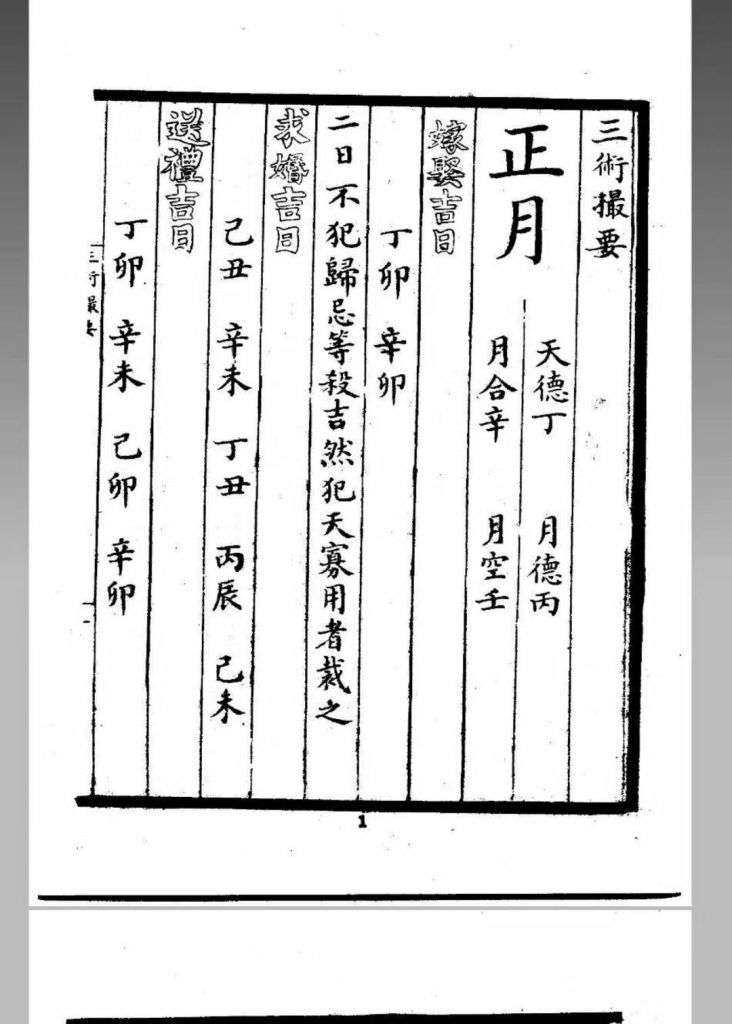 三術撮要
正月
天德丁 月德丙
月合辛 月空壬
嫁娶吉日
丁卯 辛卯
二日不犯歸忌等殺吉然犯天寡用者裁之
求婚吉日
己丑 辛未 丁丑 丙辰 己未
送禮吉日
丁卯 辛未 己卯 辛卯
三術撮要
一
1